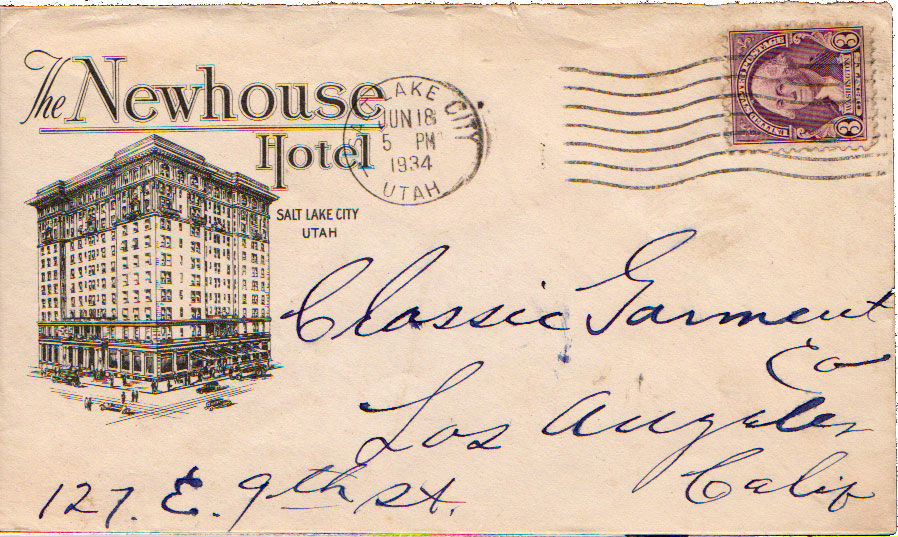 The Newhouse
Hotel
SALT LAKE CITY
UTAH
SALT LAKE CITY
JUN 18
5 PM
1934
UTAH
UNITED STATES POSTAGE
3 3
Classic Garment
Co
Los Angeles
Calif
127. E. 9th St.